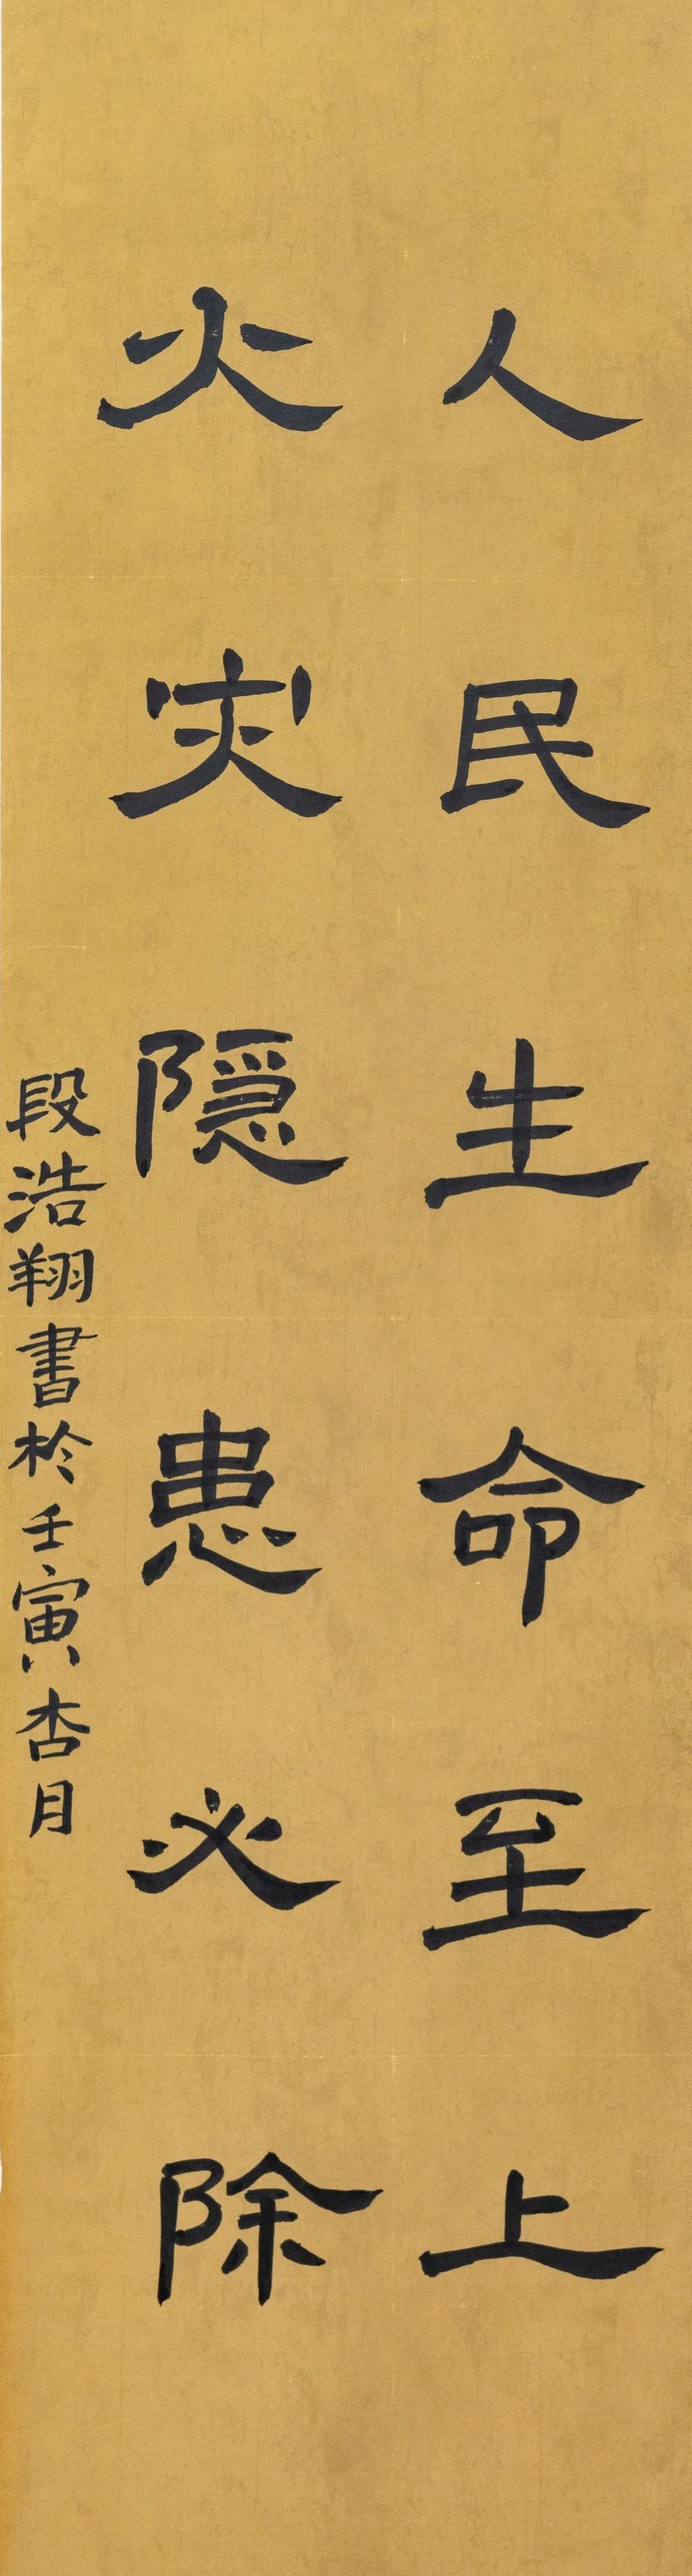 人民生命至上
火灾隐患必除
段浩翔書於壬寅杏月